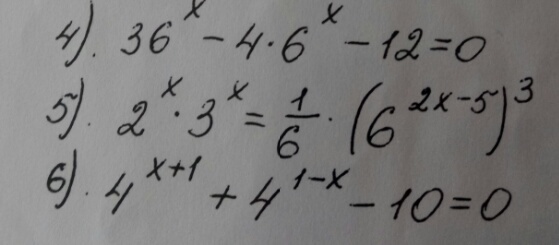 4). 36^x − 4·6^x − 12 = 0
5). 2^x · 3^x = 1/6 · (6^(2x−5))^3
6). 4^(x+1) + 4^(1−x) − 10 = 0